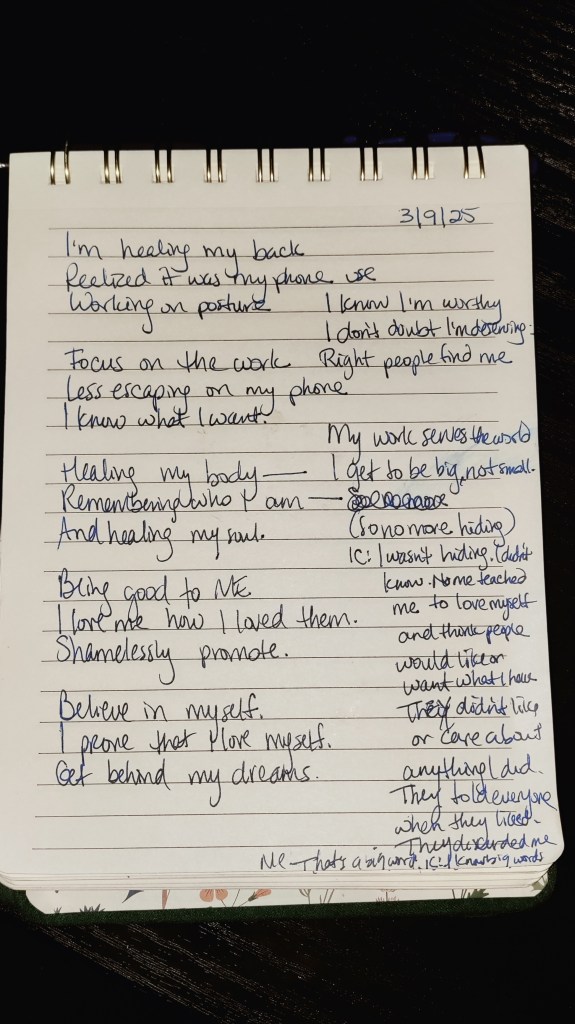 3/9/25
I'm healing my back
Realized it was my phone use
Working on posture
Focus on the work
Less escaping on my phone
I know what I want.
Healing my body —
Remembering who I am —
And healing my soul.
Being good to ME
I love me how I loved them.
Shamelessly promote.
Believe in myself.
I prove that I love myself.
Get behind my dreams.
I know I'm worthy
I don't doubt I'm deserving.
Right people find me
My work serves the world
I get to be big, not small.
(So no more hiding)
IC: I wasn't hiding. I didn't
know. No one teached
me to love myself
and think people
would like or
want what I have
They didn't like
or care about
anything I did.
They told everyone
when they lied.
They discarded me
Me - That's a big word. IC: I know big words